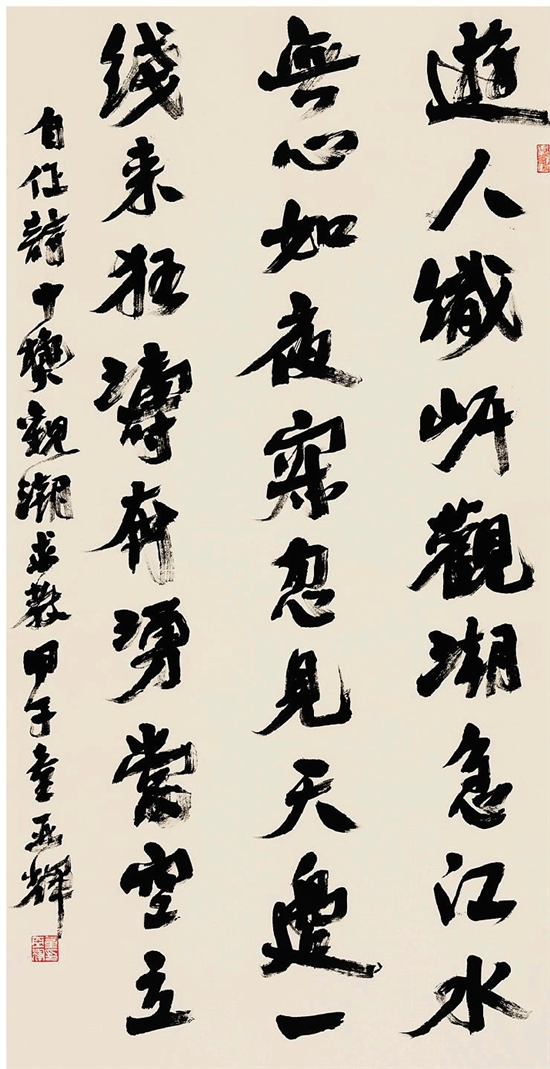 遊人織岸觀潮急江水
無心如夜寐忽見天邊一
綫来狂濤奔湧當空立
自作詩十贊觀潮求教甲午童亞輝